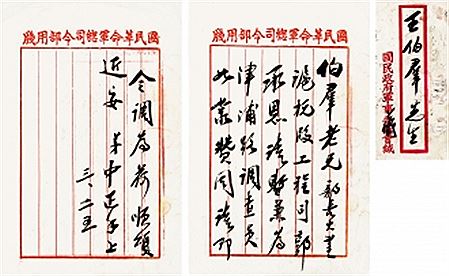 王伯羣先生
國民政府軍事
國民革命軍總司令部用牋
伯羣老兄部長大鑒
滬杭段工程司郭
承恩請暫兼為
津浦路調查員
如蒙贊同請即
國民革命軍總司令部用牋
令調為荷順頌
近安 弟中正手上
三、二五